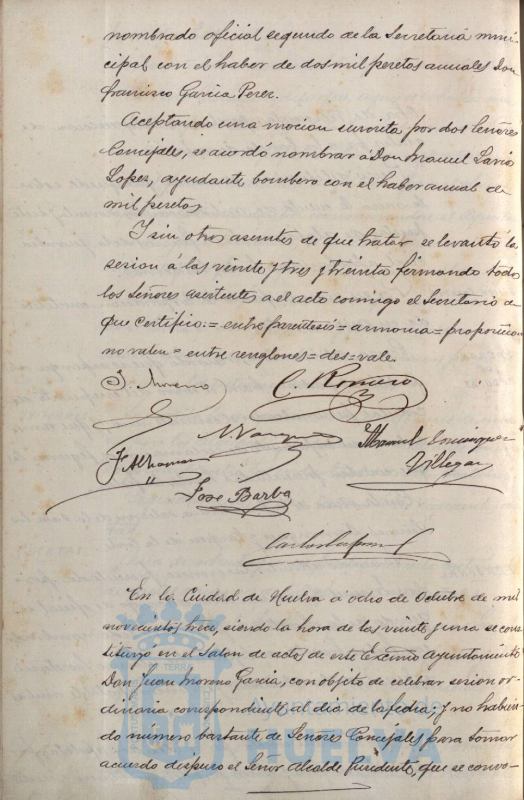 nombrado oficial segundo de la Secretaria muni-
cipal con el haber de dos mil pesetas anuales Don
Francisco Garcia Perez.
Aceptando una mocion suscrita por dos Señores
Concejales, se acordó nombrar á Don Manuel
Lopez, ayudante bombero con el haber anual de
mil pesetas
Y sin otros asuntos de que tratar se levantó la
sesion á las veinte y tres y treinta firmando todos
los Señores asistentes a el acto comigo el Secretario de
que certifico:= entre parentesis = armonia = proporcion
no valen = entre renglones = des = vale.
J. Moreno C. Romero
Vazquez Manuel Dominguez
Villegas
Jose Barba
Carlos
En la Ciudad de Huelva á ocho de Octubre de mil
novecientos trece, siendo la hora de las veinte y una se cons
tituyó en el Salon de actos de este Excmo Ayuntamiento
Don Juan Moreno Garcia, con objeto de celebrar sesion or-
dinaria correspondiente al dia de la fecha; y no habien-
do número bastante de Señores Concejales para tomar
acuerdo dispuso el Señor Alcalde Presidente, que se convo-
HUELVA